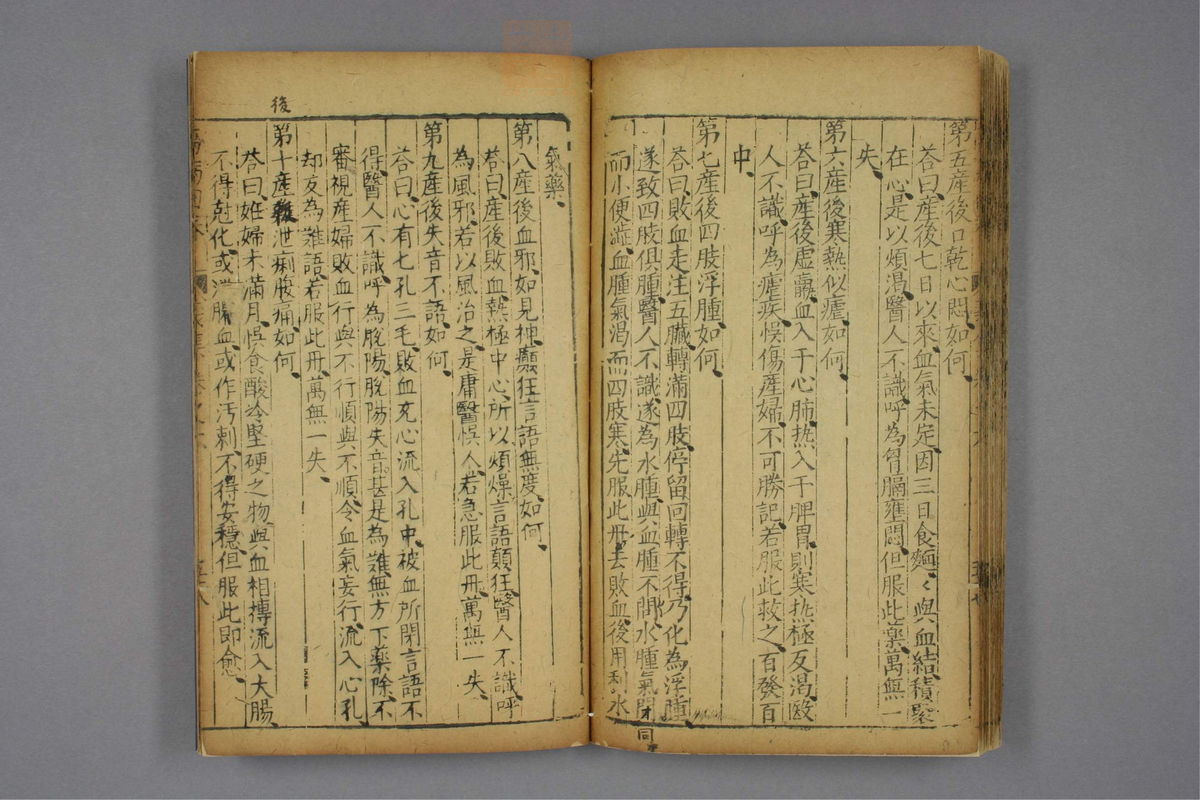 第五産後口乾心悶如何
荅曰産後七日以來血氣未定因三日食麵〻與血結積聚
在心是以煩渴醫人不識呼為胷膈壅悶但服此藥萬無一
失
第六産後寒熱似瘧如何
荅曰産後虛羸血入于心肺热入于脾胃則寒热極反渴
人不識呼為瘧疾悞傷産婦不可勝記若服此救之百發百
中
第七産後四肢浮腫如何
荅曰敗血走注五臟轉滿四肢停留回轉不得乃化為浮腫
遂致四肢俱腫醫人不識遂為水腫與血腫不問水腫氣閉
而小便澁血腫氣渴而四肢寒先服此丹去敗血後用利水
不同
氣藥
第八産後血邪如見神癲狂言語無度如何
荅曰産後敗血熱極中心所以煩燥言語顛狂醫人不識呼
為風邪若以風治之是庸醫悞人若急服此丹萬無一失
第九産後失音不語如何
荅曰心有七孔三毛敗血充心流入孔中被血所閉言語不
得醫人不識呼為脫陽脫陽失音甚是為難無方下藥除不
審視産婦敗血行與不行順與不順令血氣妄行流入心孔
却反為難語若服此丹萬無一失
後
第十産泄痢腹痛如何
荅曰姙婦未滿月悞食酸冷堅硬之物與血相摶流入大腸
不得尅化或泄膿血或作污刺不得安穩但服此即愈